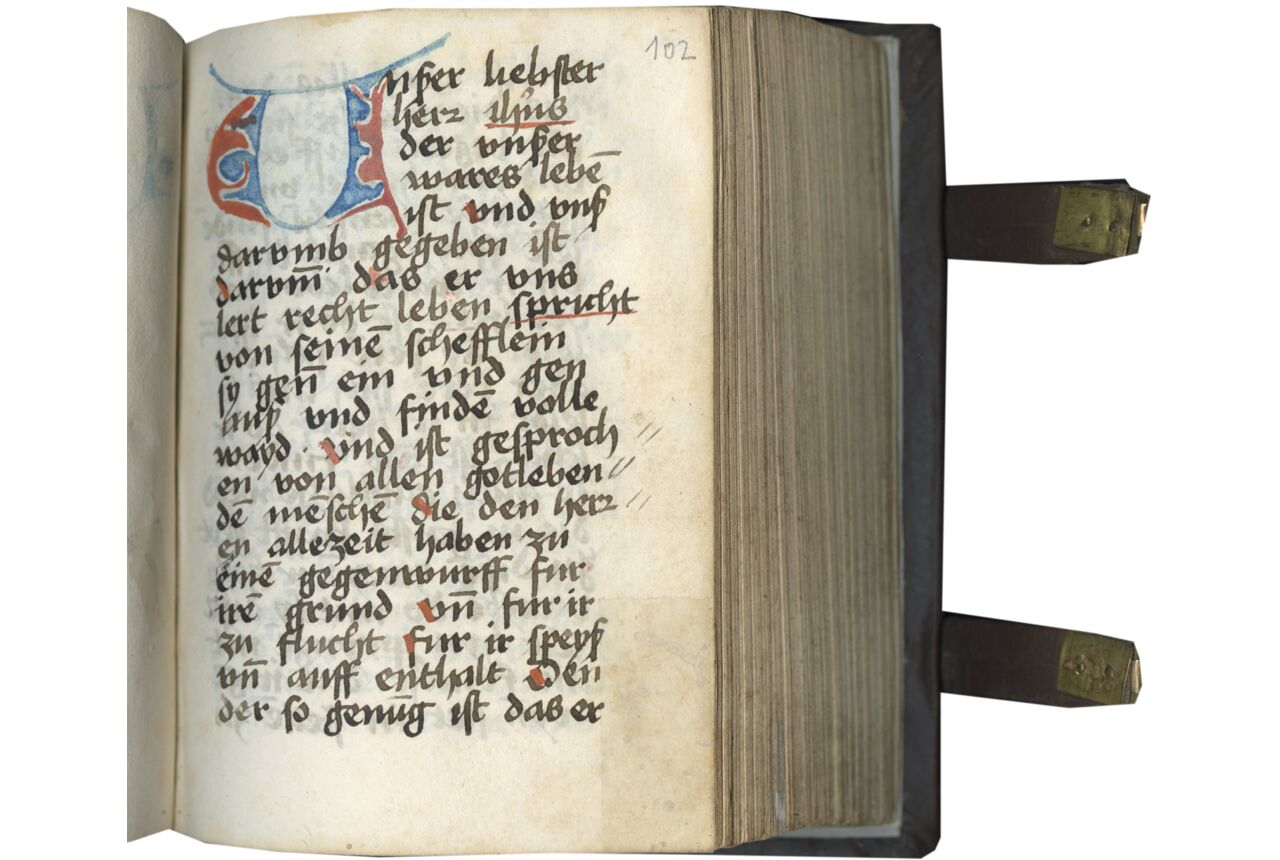 102
Vnßer liebster
herr ihus
der vnßer
wares lebē
ist vnd vnß
darvmb gegeben ist
darvm̄ das er vns
lert recht leben spricht
von seinē schefflein
sy gen̄ ein vnd gen
auß vnd findē volle
wayd. vnd ist gesproch //
en von allen gotleben //
dē mēschē die den herr //
en allezeit haben zu
einē gegenwurff fur
irē grund vn̄ fur ir
zu flucht fur ir speyß
vn̄ auff enthalt Den
der so genūg ist das er